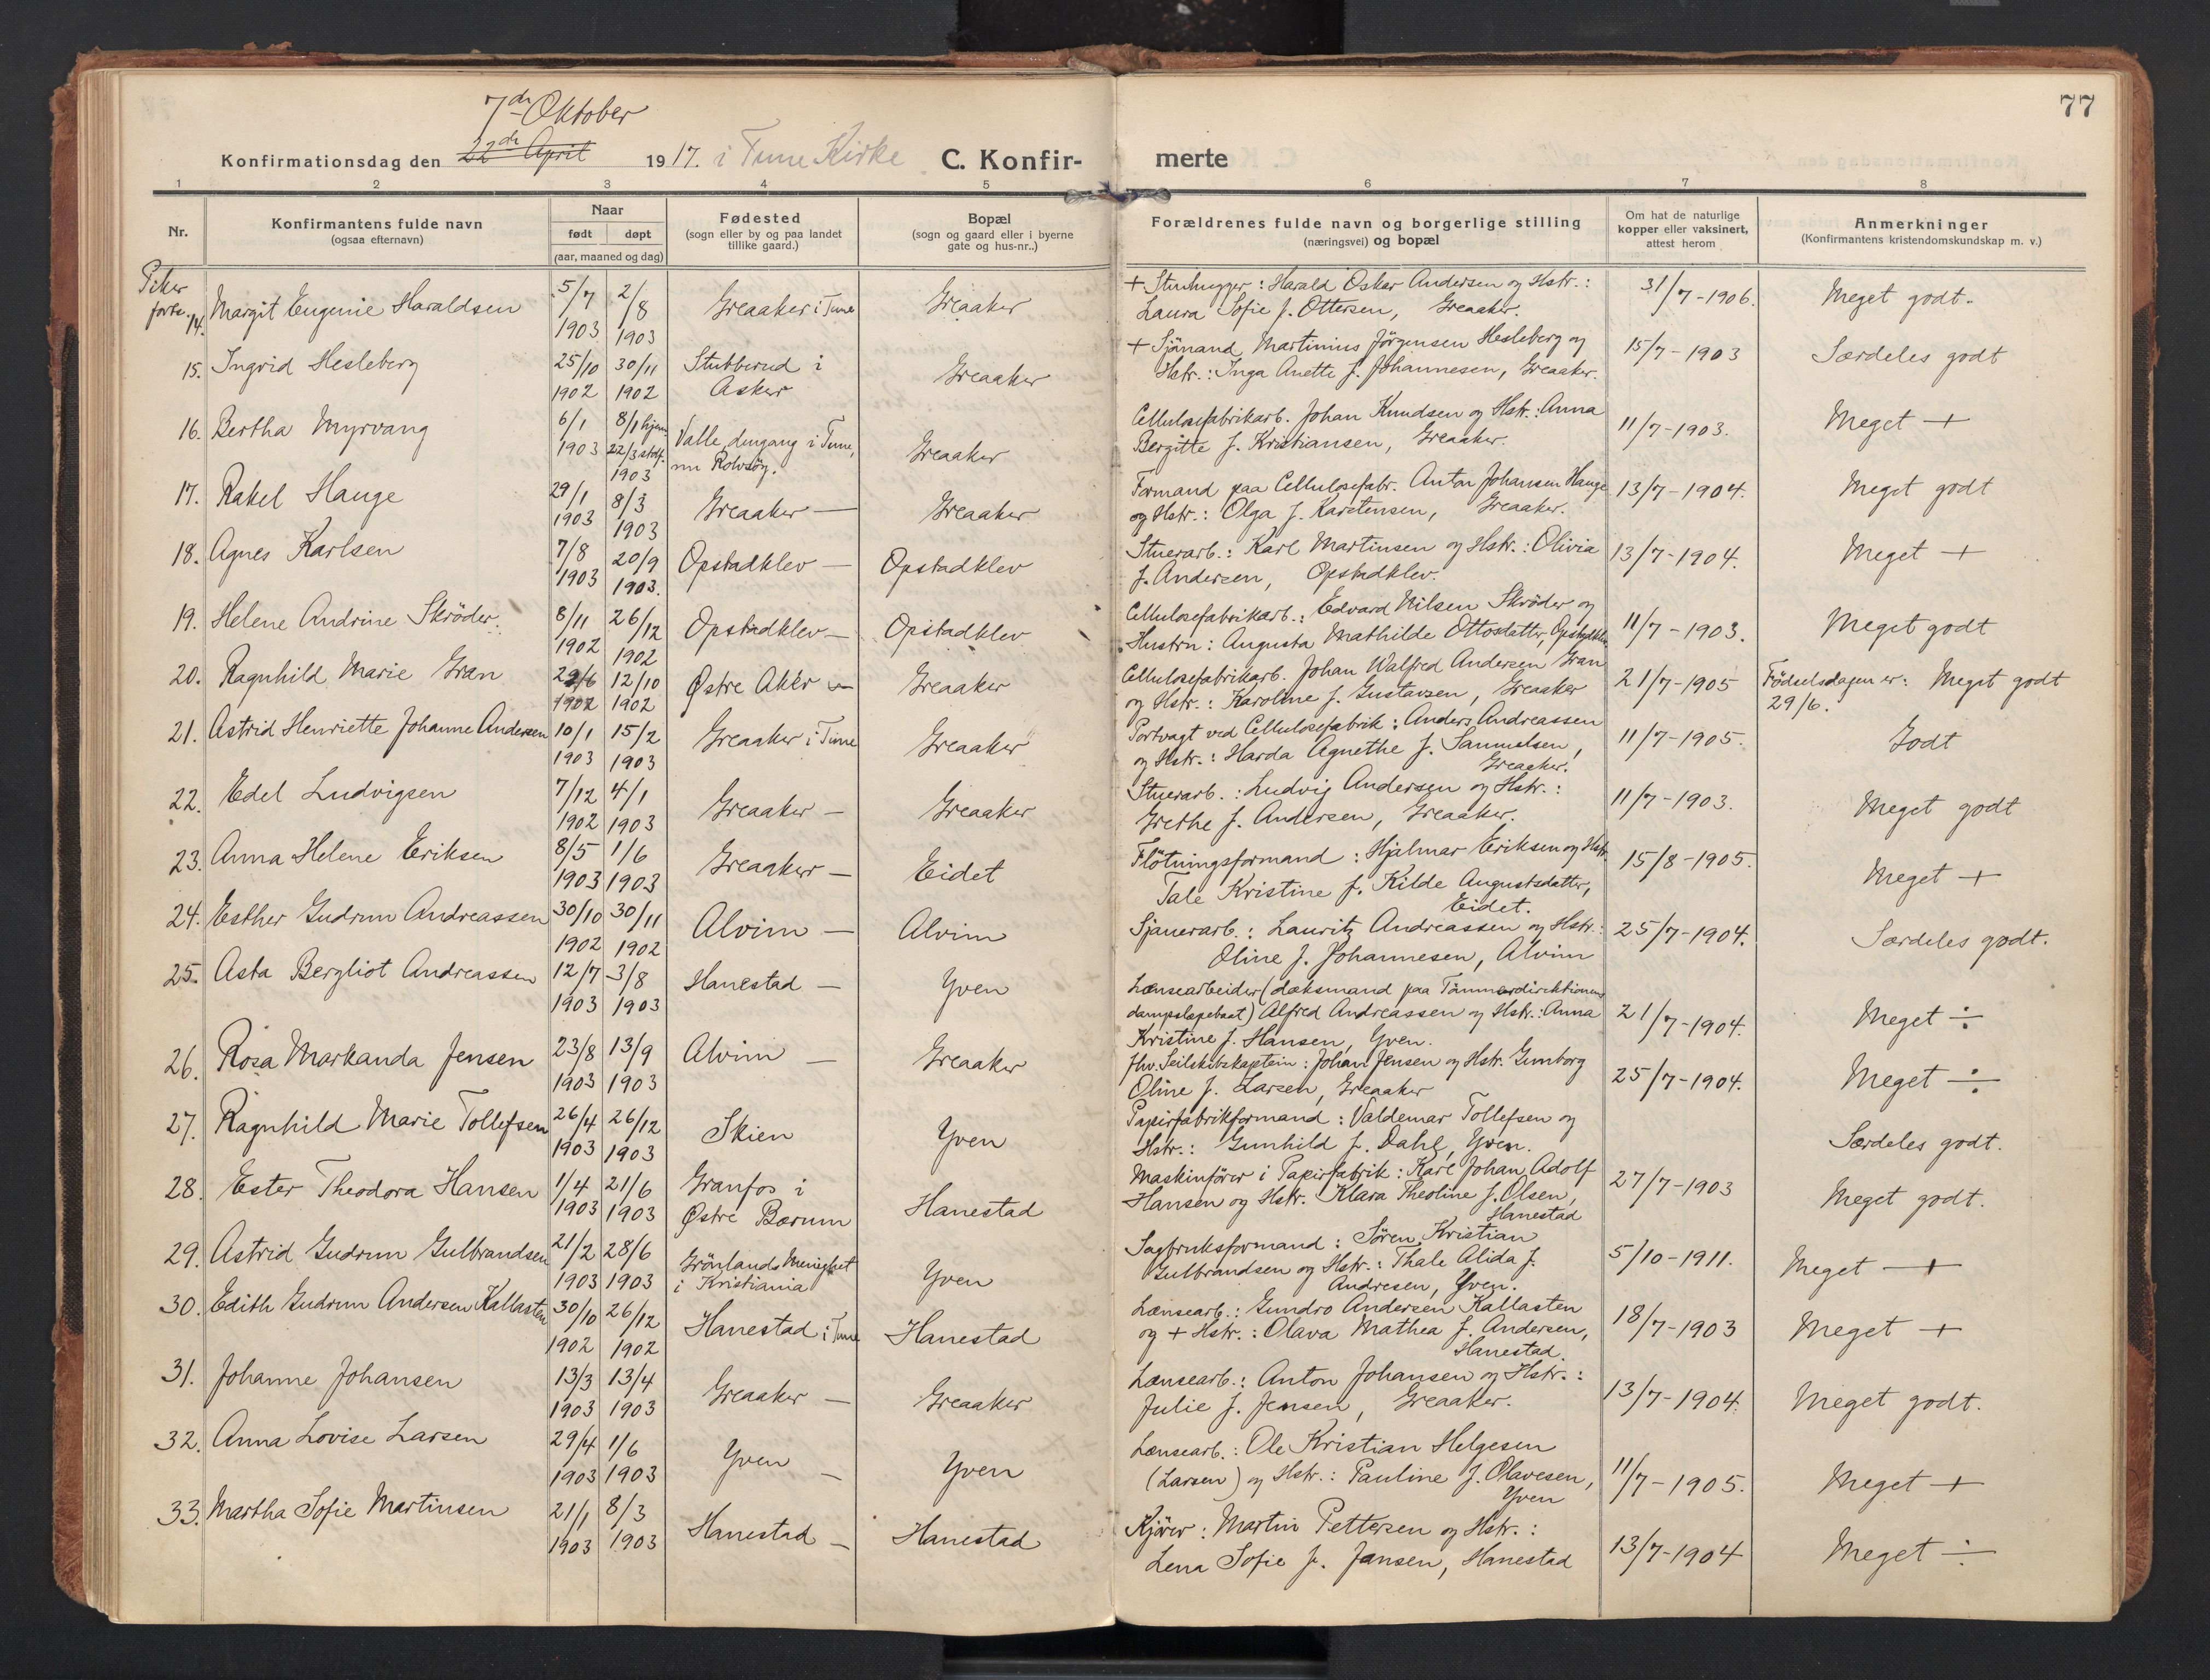 77
7de Oktober
Konfirmationsdag den 22de April 1917. i Tune Kirke C. Konfir- merte
1 2 3 4 5 6 7 8
Nr.
Konfirmantens fulde navn
(ogsaa efternavn)
Naar
født døpt
(aar, maaned og dag)
Fødested
(sogn eller by og paa landet
tillike gaard.)
Bopæl
(sogn og gaard eller i byerne
gate og hus-nr..)
Forældrenes fulde navn og borgerlige stilling
(næringsvei) og bopæl
Om hat de naturlige
kopper eller vaksinert,
attest herom
Anmerkninger
(Konfirmantens kristendomskundskap m. v.)
Piker
forts.
14. Margit Eugenie Haraldsen 5/7 1903 2/8 1903 Greaaker i Tune Greaaker
+ Stenhugger: Harald Oskar Andersen og Hstr.:
Laura Sofie f. Ottersen, Greaaker.
31/7-1906. Meget godt.
15. Ingrid Hesleberg 25/10 1902 30/11 1902 Stubberud i
Asker Greaaker
+ Sjömand Martinius Jörgensen Hesleberg og
Hstr.: Inga Anette f. Johannesen, Greaaker.
15/7-1903 Særdeles godt
16. Bertha Myrvang 6/1 1903 8/1 hjem 22/3 stadf. 1903 Valle, dengang i Tune,
nu Rolvsöy. Greaaker
Cellulosefabrikarb. Johan Knudsen og Hstr.: Anna
Bergitte f. Kristiansen, Greaaker.
11/7-1903. Meget +
17. Rakel Hauge 29/1 1903 8/3 1903 Greaaker — Greaaker
Formand paa Cellulosefabr. Anton Johansen Hauge
og Hstr.: Olga f. Karstensen, Greaaker.
13/7-1904. Meget godt
18. Agnes Karlsen 7/8 1903 20/9 1903. Opstadklev — Opstadklev
Stuerarb.: Karl Martinsen og Hstr.: Olivia
f. Andersen, Opstadklev.
13/7-1904. Meget +
19. Helene Andrine Skröder. 8/11 1902 26/12 1902 Opstadklev — Opstadklev
Cellulosefabrikarb.: Edvard Nilsen Skröder og
Hustru: Augusta Mathilde Ottosdatter, Opstadklev
11/7-1903. Meget godt
20. Ragnhild Marie Gran 29/6 1902 12/10 1902 Østre Aker — Greaaker
Cellulosefabrikarb. Johan Walfred Andersen Gran
og Hstr.: Karoline f. Gustavsen, Greaaker
21/7-1905 Födselsdagen er: Meget godt
29/6.
21. Astrid Henriette Johanne Andersen 10/1 1903 15/2 1903 Greaaker i Tune Greaaker
Portvagt ved Cellulosefabrik: Anders Andreassen
og Hstr.: Harda Agnethe f. Samuelsen,
Greaaker.
11/7-1905. Godt
22. Edel Ludvigsen 7/12 1902 4/1 1903 Greaaker — Greaaker
Stuerarb.: Ludvig Andersen og Hstr.:
Grethe f. Andersen, Greaaker.
11/7-1903. Meget godt
23. Anna Helene Eriksen 8/5 1903 1/6 1903 Greaaker — Eidet
Flötningsformand: Hjalmar Eriksen og Hstr.
Tale Kristine f. Kilde Augustsdatter,
Eidet.
15/8-1905. Meget +
24. Esther Gudrun Andreassen 30/10 1902 30/11 1902 Alvim — Alvim
Sjauerarb.: Lauritz Andreassen og Hstr.:
Oline f. Johannesen, Alvim
25/7-1904. Særdeles godt.
25. Asta Bergliot Andreassen 12/7 1903 3/8 1903 Hanestad — Yven
Lænsearbeider (dæksmand paa Tömmerdirektionens
dampslæpebaat) Alfred Andreassen og Hstr.: Anna
Kristine f. Hansen, Yven.
21/7-1904. Meget ÷
26. Rosa Markanda Jensen 23/8 1903 13/9 1903 Alvim — Greaaker
fhv. Seilskibskaptein: Johan Jensen og Hstr. Gunborg
Oline f. Larsen, Greaaker
25/7-1904. Meget ÷
27. Ragnhild Marie Tollefsen 26/4 1903 26/12 1903 Skien Yven
Papirfabrikformand: Valdemar Tollefsen og
Hstr.: Gunhild f. Dahl, Yven.
Særdeles godt.
28. Ester Theodora Hansen 1/4 1903 21/6 1903 Granfos i
Østre Bærum Hanestad
Maskinförer i Papirfabrik: Karl Johan Adolf
Hansen og Hstr. Klara Theoline f. Olsen,
Hanestad
27/7-1903 Meget godt.
29. Astrid Gudrun Gulbrandsen 21/2 1903 28/6 1903 Grönlands Menighet
i Kristiania Yven
Sagbruksformand: Sören Kristian
Gulbrandsen og Hstr.: Thale Alida f.
Andresen, Yven.
5/10-1911. Meget +
30. Edith Gudrun Andersen Kallasten 30/10 1902 26/12 1902 Hanestad i Tune Hanestad
Lænsearb.: Gundro Andersen Kallasten
og + Hstr.: Olava Mathea f. Andersen,
Hanestad.
18/7-1903 Meget +
31. Johanne Johansen 13/3 1903 13/4 1903 Greaaker — Greaaker
Lænsearb.: Anton Johansen og Hstr.:
Julie f. Jensen, Greaaker.
13/7-1904. Meget godt.
32. Anna Lovise Larsen 29/4 1903 1/6 1903 Yven — Yven
Lænsearb.: Ole Kristian Helgesen
(Larsen) og Hstr.: Pauline f. Olavesen,
Yven
11/7-1905. Meget +
33. Martha Sofie Martinsen 21/1 1903 8/3 1903 Hanestad — Hanestad
Kjörer: Martin Pettersen og Hstr.:
Lena Sofie f. Jansen, Hanestad
13/7-1904 Meget ÷